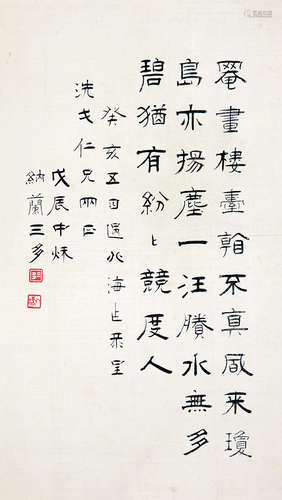 罨畫樓臺不真風来瓊
島亦揚塵一汪賸水無多
碧猶有紛〻競度人
癸亥五日過北海占呈
仁兄兩正
戊辰中秌
納蘭三多